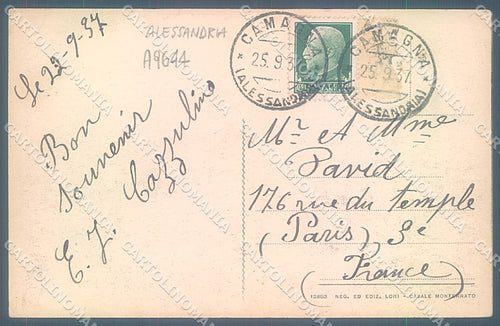 Le 22-9-37
ALESSANDRIA
A9644
CAMAGNA
25.9.37
(ALESSANDRIA)
CAMAGNA
25.9.37
(ALESSANDRIA)
Bon
souvenir
E. J. Cazzulino
Mr et Mme
David
176 rue du temple
(Paris) 3e
(France)
12803 NEG. ED EDIZ. LORI - CASALE MONFERRATO
CARTOLINOMANIA